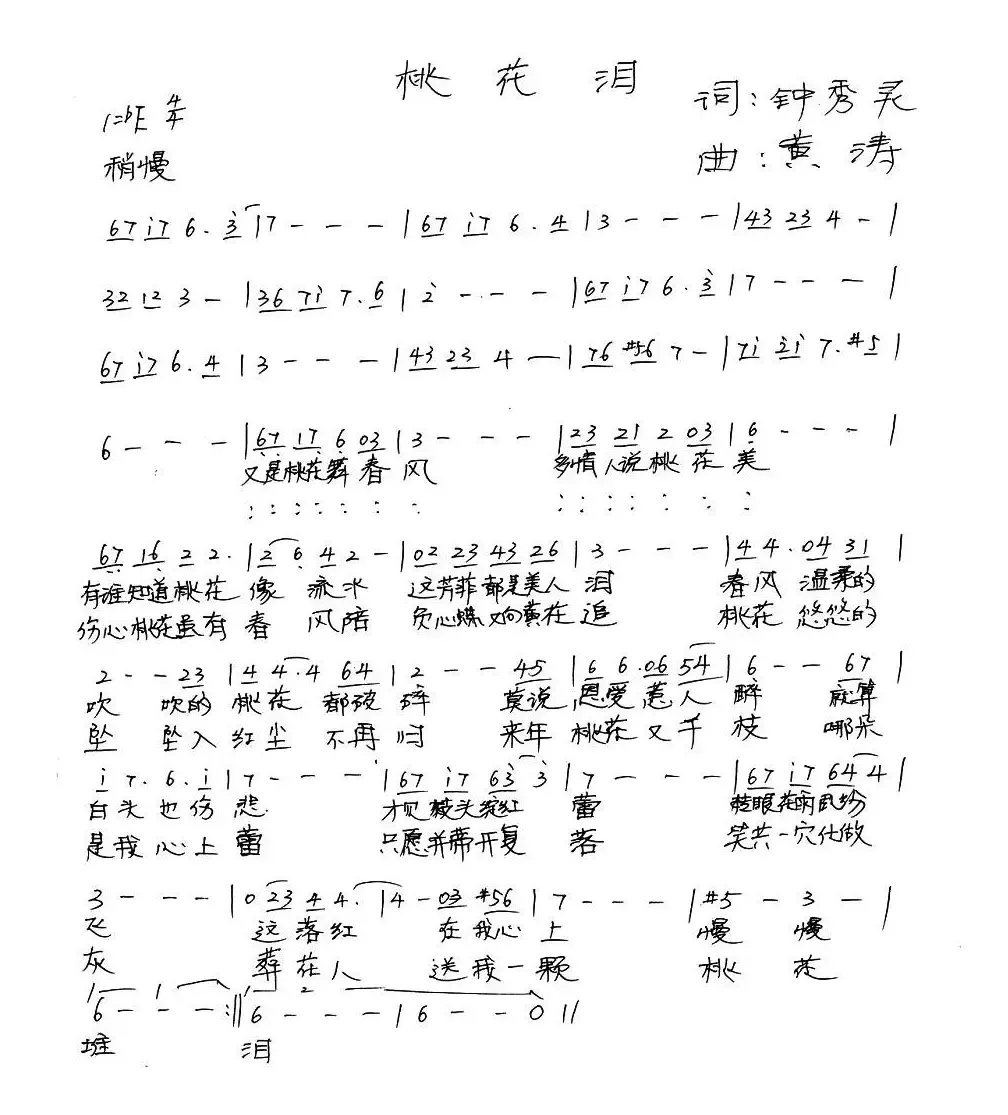 桃花泪
词：钟秀灵
1=bE 4/4
曲：黄涛
稍慢
67 i7 6. 3 | 7 - - - | 67 i7 6. 4 | 3 - - - | 43 23 4 - |
32 12 3 - | 36 7i 7. 6 | 2 - - - | 67 i7 6. 3 | 7 - - - |
67 i7 6. 4 | 3 - - - | 43 23 4 — | 76 #56 7 - | 7i 2i 7. #5 |
6 - - - | 67 17 6 03 | 3 - - - | 23 21 2 03 | 6 - - - |
又是桃花舞春风 多情人说桃花美
: : : : : : : : : : : : : :
67 16 2 2. | 2 6 4 2 - | 02 23 43 26 | 3 - - - | 4 4. 04 31 |
有谁知道桃花像流水 这芳菲都是美人泪 春风温柔的
伤心桃花虽有春风陪 负心蝶又向黄花追 桃花悠悠的
2 - - 23 | 4 4. 4 64 | 2 - - 45 | 6 6. 06 54 | 6 - - 67 |
吹 吹的桃花都破碎 莫说恩爱惹人醉 就算
坠 坠入红尘不再归 来年桃花又千枝 哪朵
i 7. 6. i | 7 - - - | 67 i7 63 3 | 7 - - - | 67 i7 64 4 |
白头也伤悲 枝头绽红蕾 眼花雨
是我心上蕾 只愿并蒂开复落 笑共一穴化做
3 - - - | 0 23 4 4. | 4 - 03 #56 | 7 - - - | #5 - 3 - |
飞 这落红在我心上 慢慢
灰 葬花人送我一颗 桃花
1 1 2
6 - - - :|| 6 - - - | 6 - - 0 ||
堆 泪